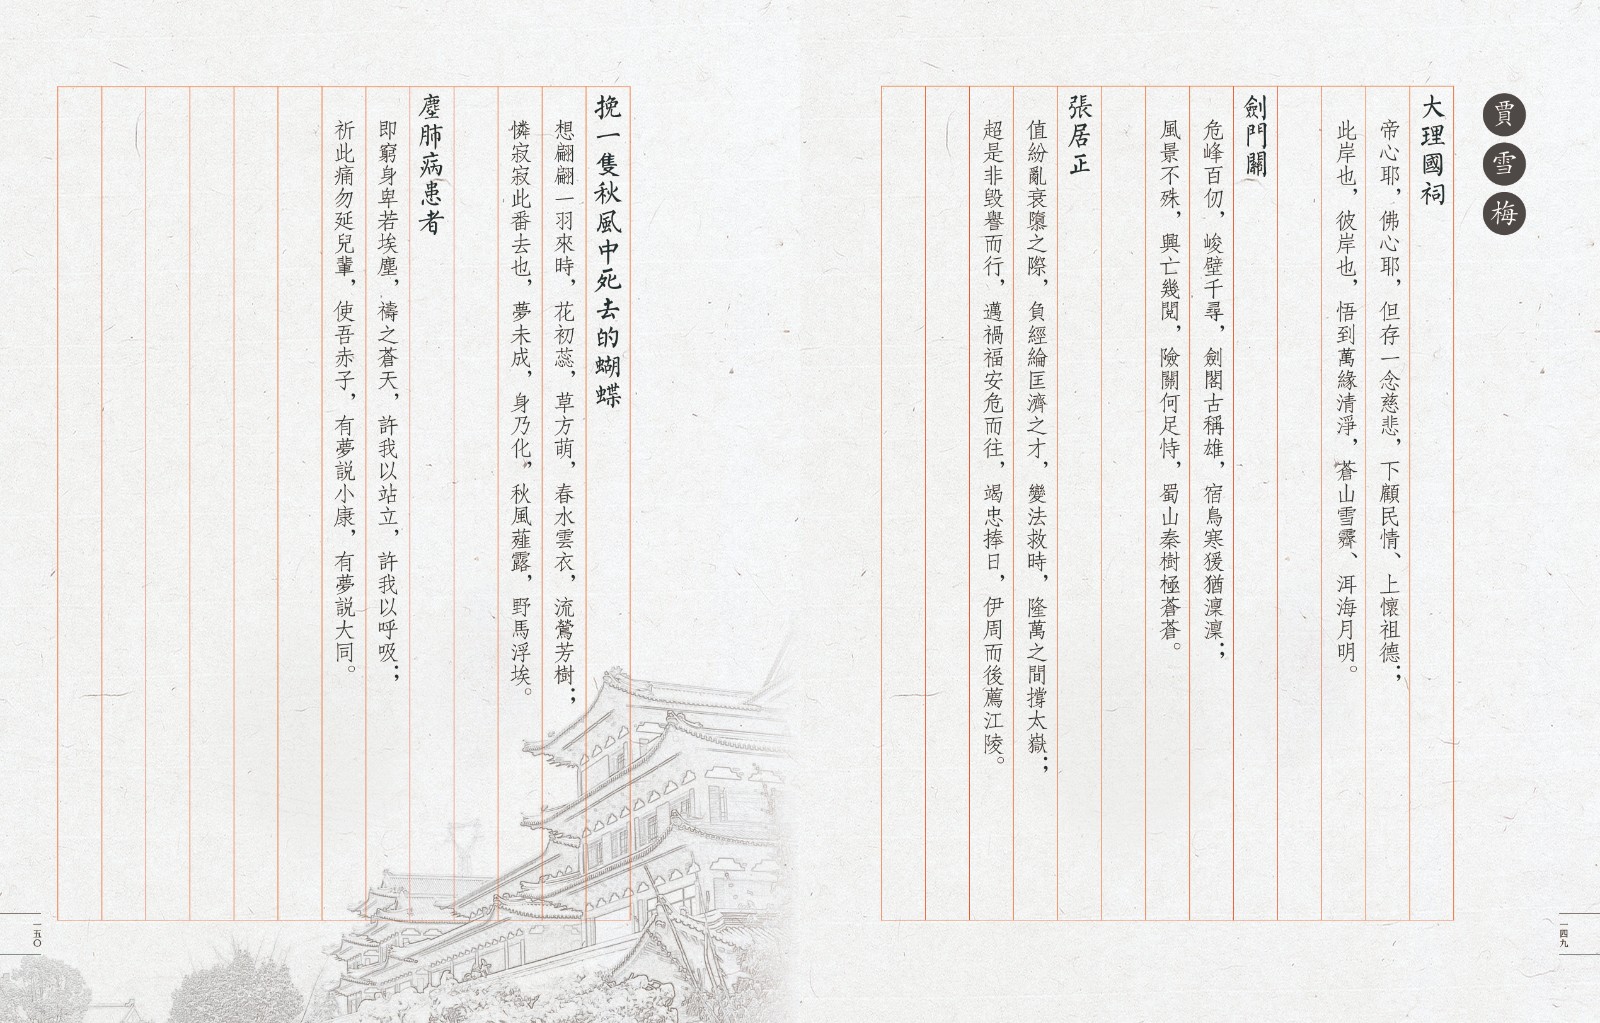 賈雪梅
大理國祠
帝心耶，佛心耶，但存一念慈悲，下顧民情、上懷祖德；
此岸也，彼岸也，悟到萬緣清淨，蒼山雪霽、洱海月明。
劍門關
危峰百仞，峻壁千尋，劍閣古稱雄，宿鳥寒猨猶凜凜；
風景不殊，興亡幾閱，險關何足恃，蜀山秦樹極蒼蒼。
張居正
值紛亂衰隳之際，負經綸匡濟之才，變法救時，隆萬之間撐太嶽；
超是非毀譽而行，邁禍福安危而往，竭忠捧日，伊周而後薦江陵。
一四九
挽一隻秋風中死去的蝴蝶
想翩翩一羽來時，花初蕊，草方萌，春水雲衣，流鶯芳樹；
憐寂寂此番去也，夢未成，身乃化，秋風薤露，野馬浮埃。
塵肺病患者
即窮身卑若埃塵，禱之蒼天，許我以站立，許我以呼吸；
祈此痛勿延兒輩，使吾赤子，有夢説小康，有夢説大同。
一五〇